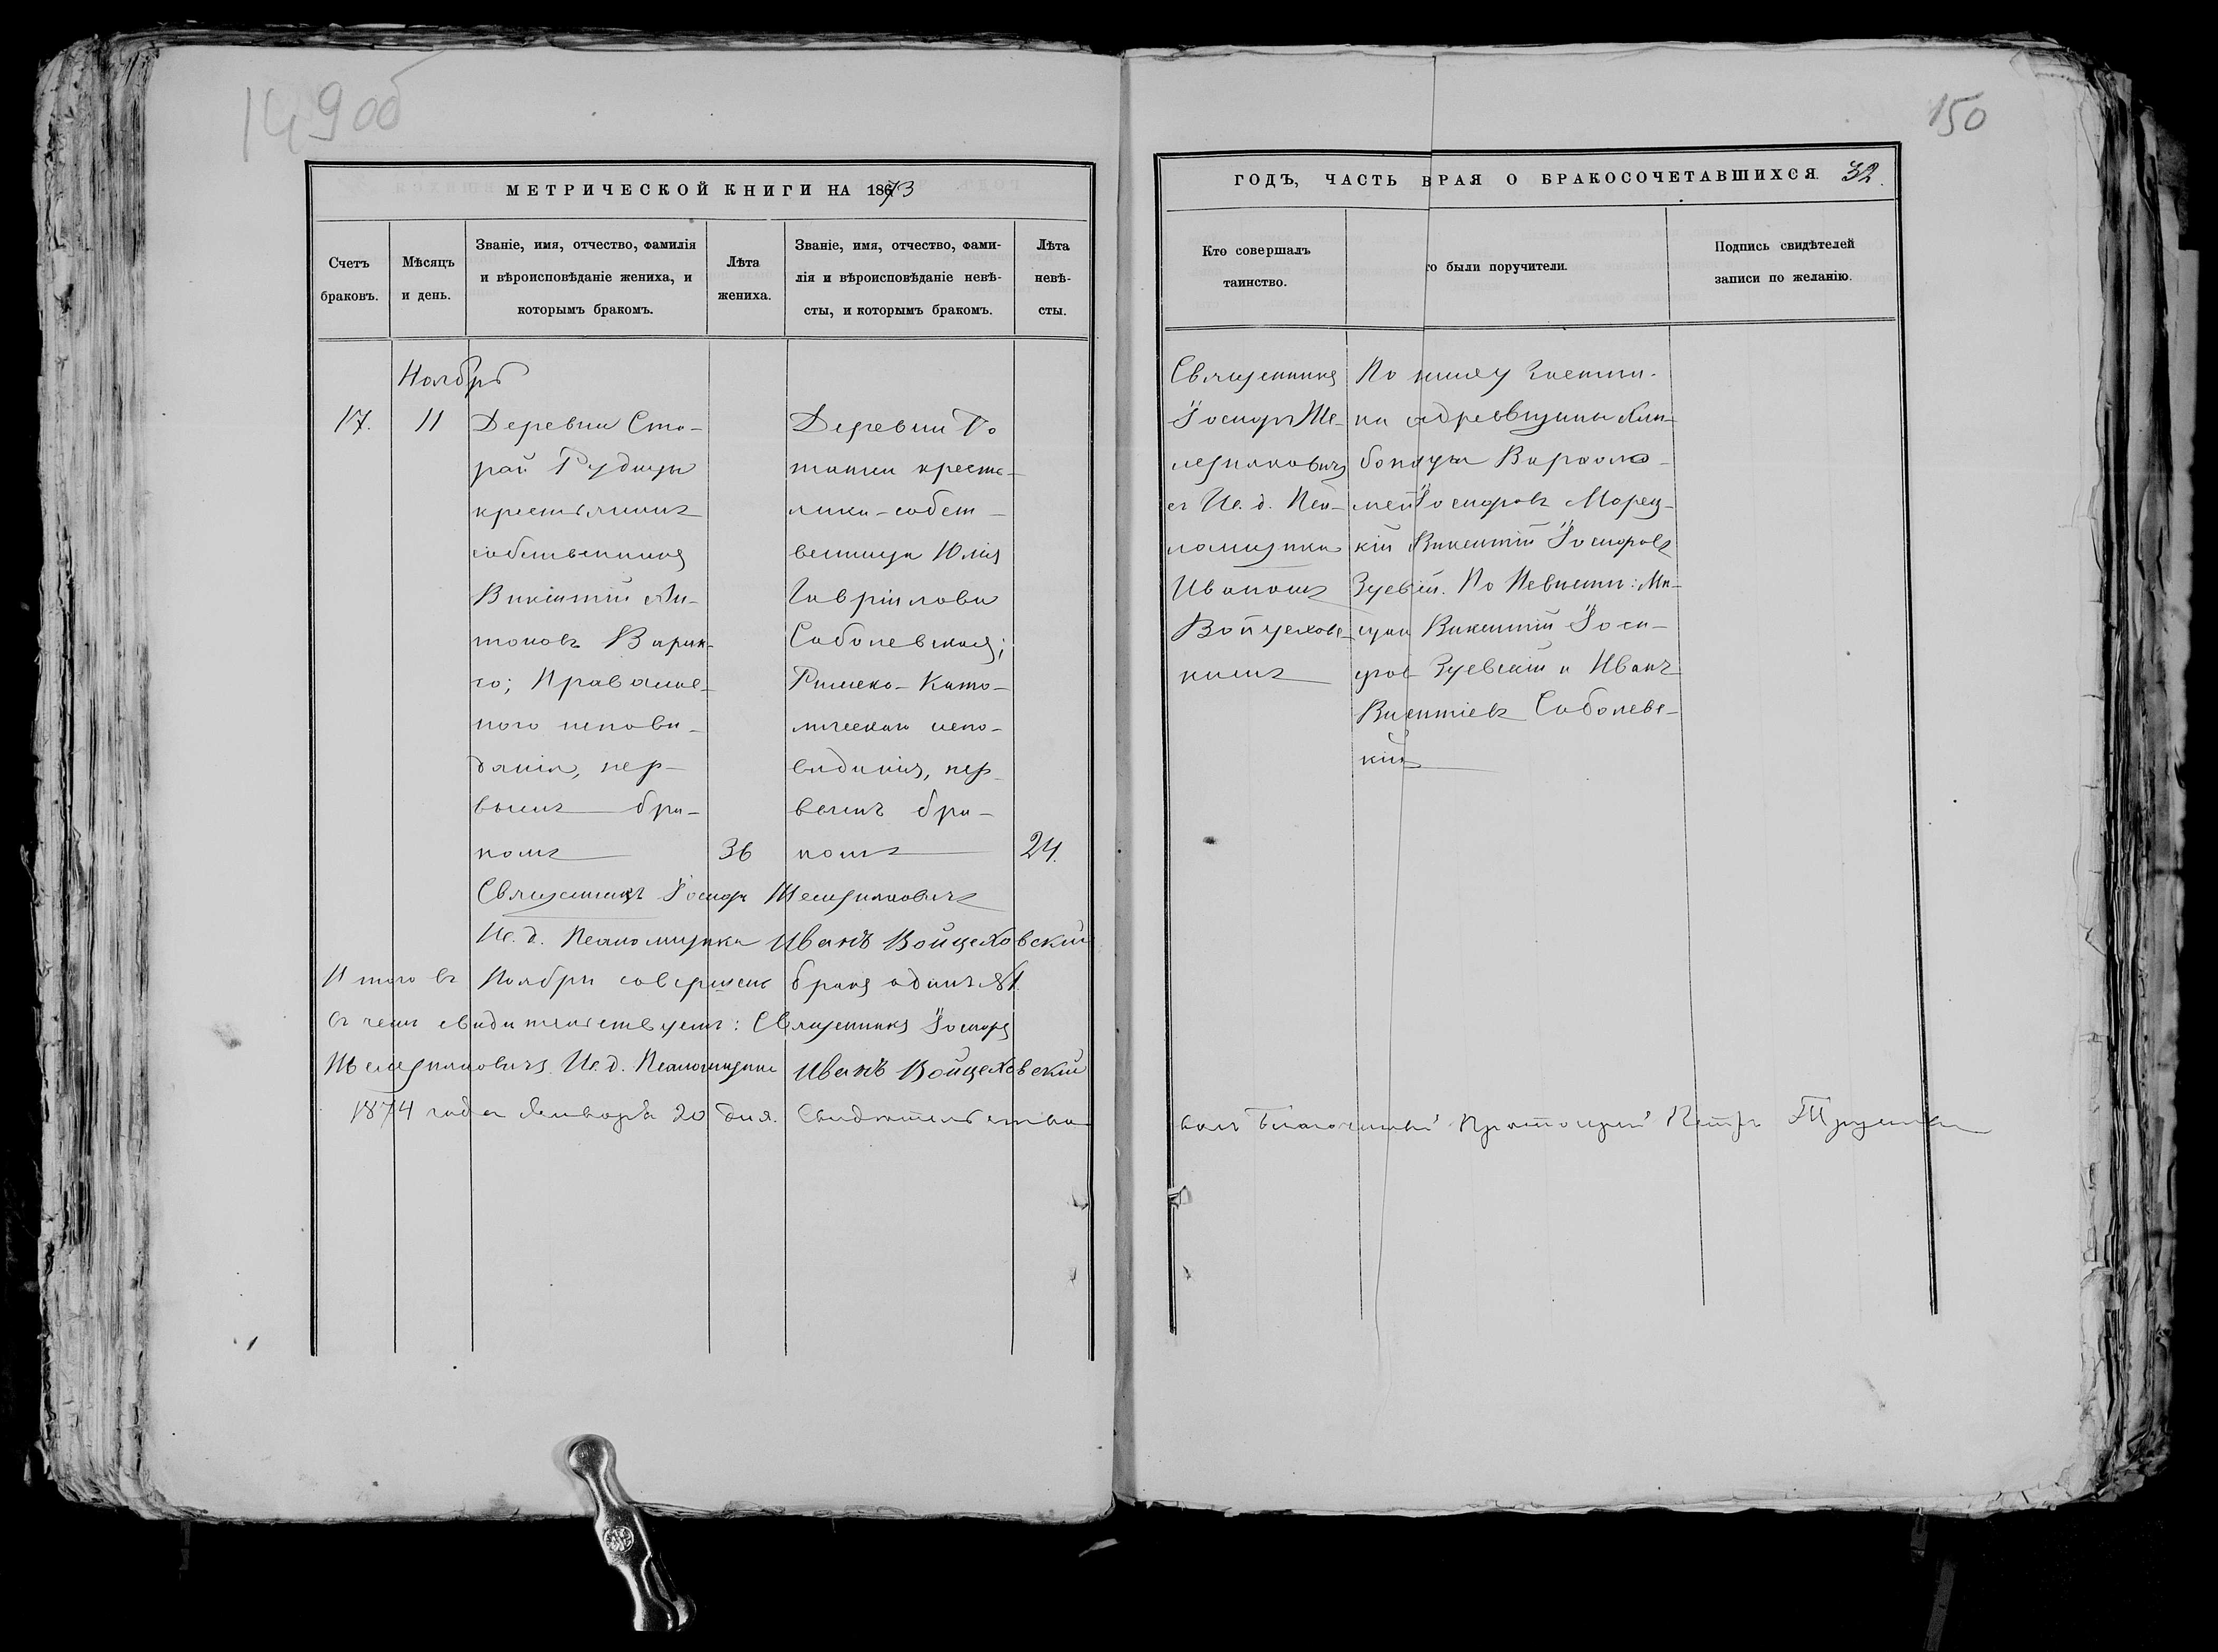 149 об
МЕТРИЧЕСКОЙ КНИГИ НА 1873
Счетъ браковъ.
Мѣсяцъ и день.
Званіе, имя, отчество, фамилія
и вѣроисповѣданіе жениха, и
которымъ бракомъ.
Лѣта жениха.
Званіе, имя, отчество, фами-
лія и вѣроисповѣданіе невѣ-
сты, и которымъ бракомъ.
Лѣта невѣ-
сты.
Ноябрь
17.
11
Деревни Ста-
рай Рудицы
крестьянинъ
собственникъ
Викентій Ан-
тоновъ
Православ-
ного исповѣ-
данія, пер-
вымъ бра-
комъ
36
Деревни
кресть-
янка-собст-
венница Юлія
Гавріилова
Соболевская;
Римско-Като-
лическаго испо-
вѣданія, пер-
вымъ бра-
комъ
24.
Священникъ Іосифъ
Ис. д. Псаломщика Иванъ Войцеховскій
Итого въ Ноябрѣ совершенъ бракъ одинъ №1.
въ чемъ свидѣтельствуемъ: Священникъ Іосифъ
Ис. д. Псаломщика Иванъ Войцеховскій
1874 года Января 20 дня. Свидѣтельство-
150
ГОДЪ, ЧАСТЬ ВРАЯ О БРАКОСОЧЕТАВШИХСЯ. 32.
Кто совершалъ
таинство.
го были поручители.
Подпись свидѣтелей
записи по желанію.
Священникъ
Іосифъ
съ Ис. д. Пса-
ломщика
Иваномъ
Войцеховс-
кимъ
По
Варѳоло-
мей Іосифовъ
кій Викентій Іосифовъ
Зуевскій. По Невѣсти: Мѣ-
щан Викентій Іоси-
фов Зуевскій и Иванъ
Викентіевъ Соболевс-
кій
валъ Благочинный Протоіерей Петръ